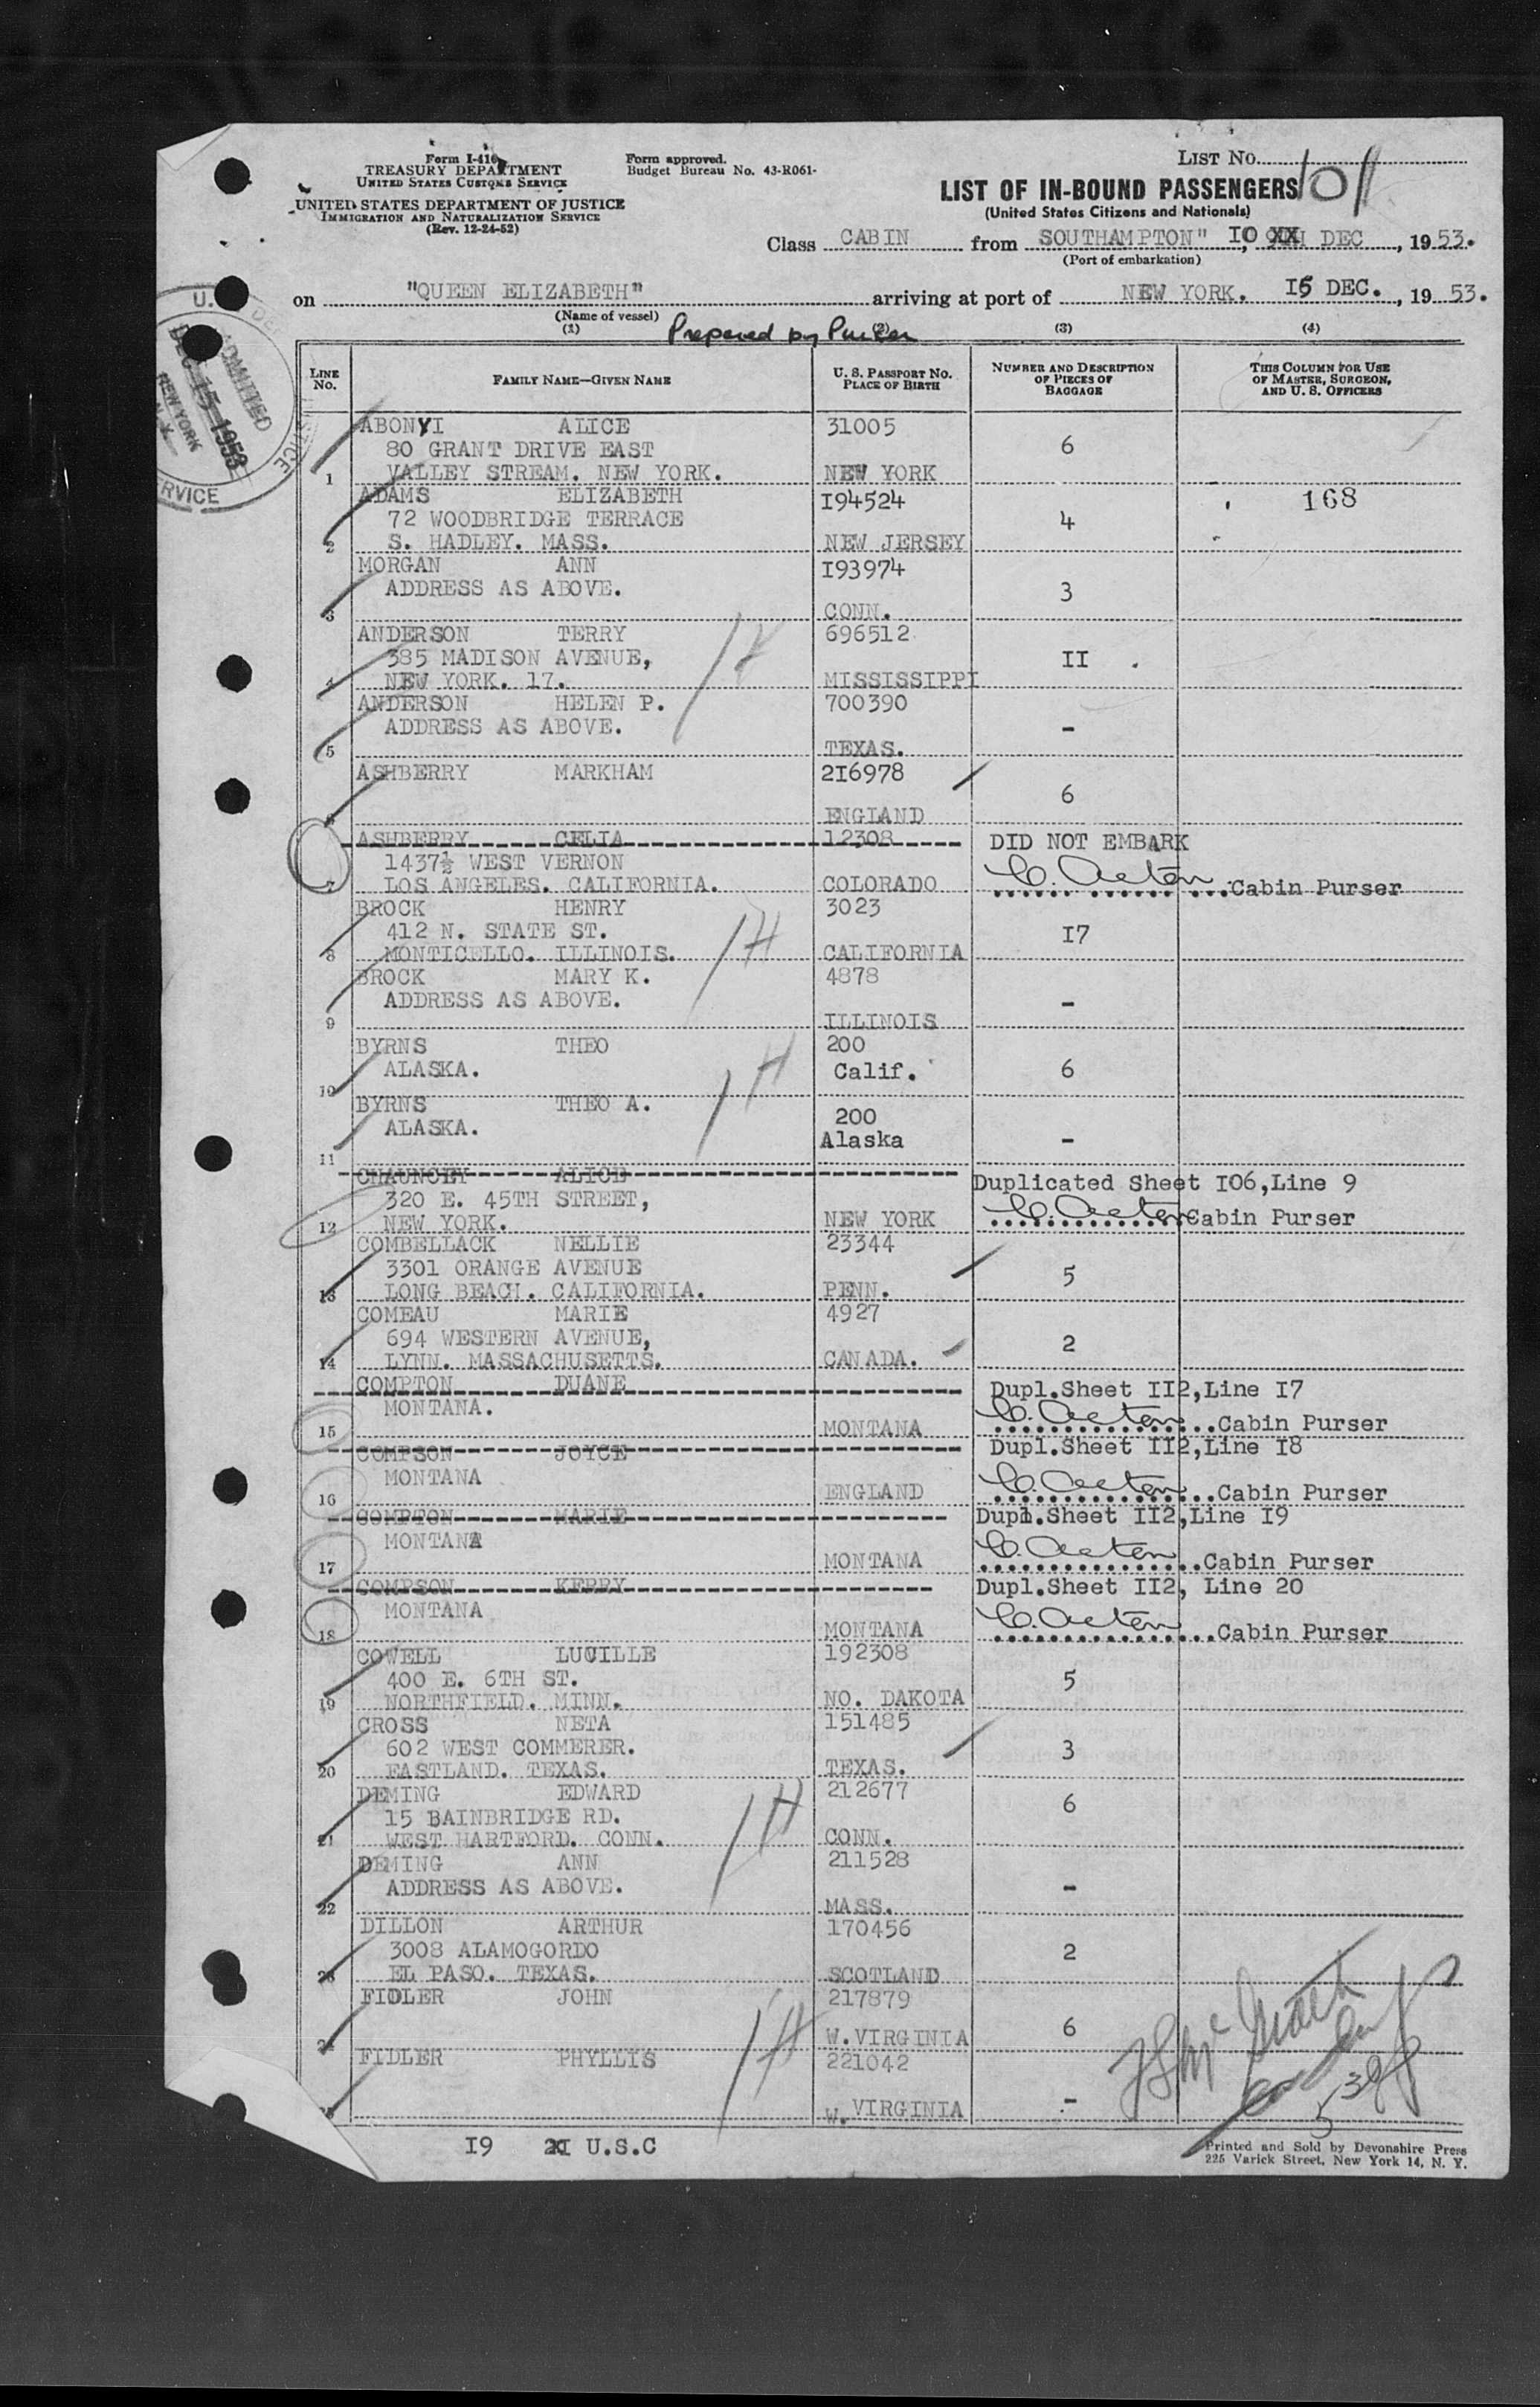 Form I-416
TREASURY DEPARTMENT
UNITED STATES CUSTOMS SERVICE
UNITED STATES DEPARTMENT OF JUSTICE
IMMIGRATION AND NATURALIZATION SERVICE
(Rev. 12-24-52)
Form approved.
Budget Bureau No. 43-R061-
LIST No. 101
LIST OF IN-BOUND PASSENGERS
(United States Citizens and Nationals)
Class CABIN from SOUTHAMPTON" IO XX DEC, 1953.
(Port of embarkation)
on "QUEEN ELIZABETH" arriving at port of NEW YORK. I5 DEC., 1953.
(Name of vessel)
(1) (2) (3) (4)
Prepared by Purser
ADMITTED
DEC 15 1953
NEW YORK
N.Y.
LINE No. FAMILY NAME—GIVEN NAME U. S. PASSPORT No. PLACE OF BIRTH NUMBER AND DESCRIPTION OF PIECES OF BAGGAGE THIS COLUMN FOR USE OF MASTER, SURGEON, AND U. S. OFFICERS
ABONYI ALICE 31005
80 GRANT DRIVE EAST 6
1 VALLEY STREAM. NEW YORK. NEW YORK
ADAMS ELIZABETH I94524 168
72 WOODBRIDGE TERRACE 4
2 S. HADLEY. MASS. NEW JERSEY
MORGAN ANN I93974
ADDRESS AS ABOVE. 3
3 CONN.
ANDERSON TERRY 696512
385 MADISON AVENUE, II
4 NEW YORK. 17. MISSISSIPPI
ANDERSON HELEN P. 700390
ADDRESS AS ABOVE. -
5 TEXAS.
ASHBERRY MARKHAM 2I6978
6
6 ENGLAND
ASHBERRY CELIA 12308 DID NOT EMBARK
1437½ WEST VERNON
7 LOS ANGELES. CALIFORNIA. COLORADO C. Acton Cabin Purser
BROCK HENRY 3023
412 N. STATE ST. I7
8 MONTICELLO. ILLINOIS. CALIFORNIA
BROCK MARY K. 4878
ADDRESS AS ABOVE. -
9 ILLINOIS
BYRNS THEO 200
ALASKA. Calif. 6
10
BYRNS THEO A. 200
ALASKA. Alaska -
11
CHAUNCEY ALICE Duplicated Sheet I06,Line 9
320 E. 45TH STREET,
12 NEW YORK. NEW YORK C. Acton Cabin Purser
COMBELLACK NELLIE 23344
3301 ORANGE AVENUE 5
13 LONG BEACH. CALIFORNIA. PENN.
COMEAU MARIE 4927
694 WESTERN AVENUE, 2
14 LYNN. MASSACHUSETTS. CANADA.
COMPTON DUANE Dupl.Sheet II2,Line I7
MONTANA.
15 MONTANA C. Acton Cabin Purser
COMPSON JOYCE Dupl.Sheet II2,Line I8
MONTANA
16 ENGLAND C. Acton Cabin Purser
COMPTON MARIE Dupl.Sheet II2,Line I9
MONTANA
17 MONTANA C. Acton Cabin Purser
COMPSON KERRY Dupl.Sheet II2, Line 20
MONTANA
18 MONTANA C. Acton Cabin Purser
COWELL LUCILLE 192308
400 E. 6TH ST. 5
19 NORTHFIELD. MINN. NO. DAKOTA
CROSS NETA 151485
602 WEST COMMERER. 3
20 EASTLAND. TEXAS. TEXAS.
DEMING EDWARD 212677
15 BAINBRIDGE RD. 6
21 WEST HARTFORD. CONN. CONN.
DEMING ANN 211528
ADDRESS AS ABOVE. -
22 MASS.
DILLON ARTHUR 170456
3008 ALAMOGORDO 2
23 EL PASO. TEXAS. SCOTLAND
FIDLER JOHN 217879
24 W.VIRGINIA 6
FIDLER PHYLLIS 221042
W. VIRGINIA -
I9 U.S.C
Printed and Sold by Devonshire Press
225 Varick Street, New York 14, N. Y.